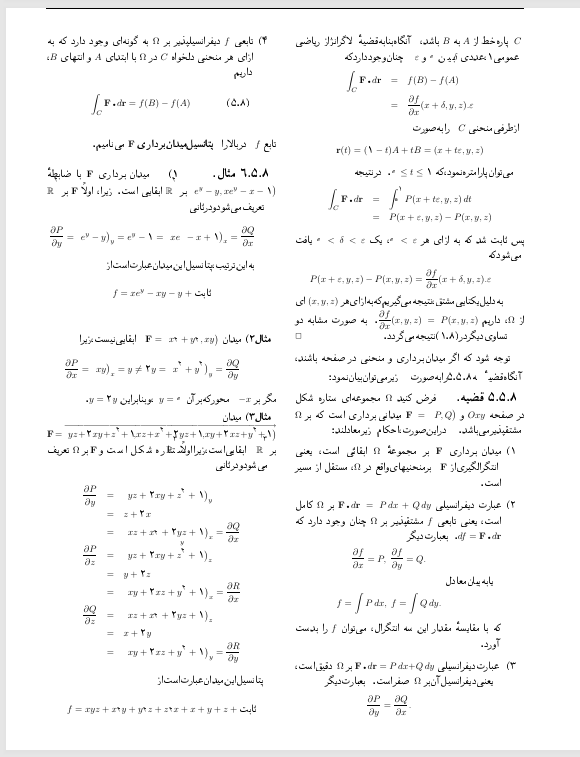 C پاره‌خط از A به B باشد، آنگاه بنابه قضیهٔ لاگرانژ از ریاضی
عمومی ۱، عددی بین ۰ و ε چنان وجود دارد که
∫_C F•dr = f(B) − f(A)
= ∂f/∂x (x + δ, y, z).ε
از طرفی منحنی C را به صورت
r(t) = (۱ − t)A + tB = (x + tε, y, z)
می‌توان پارامتره نمود، که ۰ ≤ t ≤ ۱. در نتیجه
∫_C F•dr = ∫_۰^۱ P(x + tε, y, z) dt
= P(x + ε, y, z) − P(x, y, z)
پس ثابت شد که به ازای هر ε < ۰، یک ۰ < δ < ε یافت
می‌شود که
P(x + ε, y, z) − P(x, y, z) = ∂f/∂x (x + δ, y, z).ε
به دلیل یکتایی مشتق، نتیجه می‌گیریم که به ازای هر (x, y, z) ای
از Ω، داریم ∂f/∂x (x, y, z) = P(x, y, z). به صورت مشابه دو
تساوی دیگر در (۸.۱) نتیجه می‌گردد. □
توجه شود که اگر میدان برداری و منحنی در صفحه باشند،
آنگاه قضیهٔ ۵.۵.۸ را به صورت زیر می‌توان بیان نمود:
۵.۵.۸ قضیه. فرض کنید Ω مجموعه‌ای ستاره شکل
در صفحه Oxy و F = P, Q) میدانی برداری است که بر Ω
مشتقپذیر می‌باشد. در این صورت، احکام زیر معادلند:
۱) میدان برداری F بر مجموعهٔ Ω ابقائی است، یعنی
انتگرالگیری از F بر منحنیهای واقع در Ω، مستقل از مسیر
است.
۲) عبارت دیفرانسیلی F•dr = P dx + Q dy بر Ω کامل
است، یعنی تابعی f مشتقپذیر بر Ω چنان وجود دارد که
df = F•dr. بعبارت دیگر
∂f/∂x = P, ∂f/∂y = Q.
یا به بیان معادل
f = ∫ P dx, f = ∫ Q dy.
که با مقایسهٔ مقدار این سه انتگرال، می‌توان f را بدست
آورد.
۳) عبارت دیفرانسیلی F•dr = P dx+Q dy بر Ω دقیق است،
یعنی دیفرانسیل آن بر Ω صفر است. بعبارت دیگر
∂P/∂y = ∂Q/∂x.
۴) تابعی f دیفرانسیلپذیر بر Ω به گونه‌ای وجود دارد که به
ازای هر منحنی دلخواه C در Ω با ابتدای A و انتهای B،
داریم
∫_C F•dr = f(B) − f(A) (۵.۸)
تابع f در بالا را پتانسیل میدان برداری F می‌نامیم.
۶.۵.۸ مثال. ۱) میدان برداری F با ضابطهٔ
e^y − y, xe^y − x − ۱) بر ℝ ابقایی است. زیرا، اولاً F بر ℝ
تعریف می‌شود و در ثانی
∂P/∂y = e^y − y)_y = e^y − ۱ = xe − x + ۱)_x = ∂Q/∂x
به این ترتیب، پتانسیل این میدان عبارت است از
f = xe^y − xy − y + ثابت
مثال۲) میدان F = x۲ + y۲, xy) ابقایی نیست، زیرا
∂P/∂x = xy)_x = y ≠ ۲y = x^۲ + y^۲)_y = ∂Q/∂y
مگر بر −x محور که بر آن y = ۰ و بنابراین y = ۲y.
مثال۳) میدان
F = yz+۲xy+z^۲+۱, xz+x^۲+۲yz+۱, xy+۲xz+y^۲+۱)
بر ℝ ابقایی است، زیرا اولاً ستاره شکل است و F بر Ω تعریف
می‌شود و در ثانی
∂P/∂y = yz + ۲xy + z^۲ + ۱)_y
= z + ۲x
= xz + x۲ + ۲yz + ۱)_x = ∂Q/∂x
∂P/∂z = yz + ۲xy + z^۲ + ۱)_z
= y + ۲z
= xy + ۲xz + y^۲ + ۱)_x = ∂R/∂x
∂Q/∂z = xz + x۲ + ۲yz + ۱)_z
= x + ۲y
= xy + ۲xz + y^۲ + ۱)_y = ∂R/∂y
پتانسیل این میدان عبارت است از
f = xyz + x۲y + y۲z + z۲x + x + y + z + ثابت